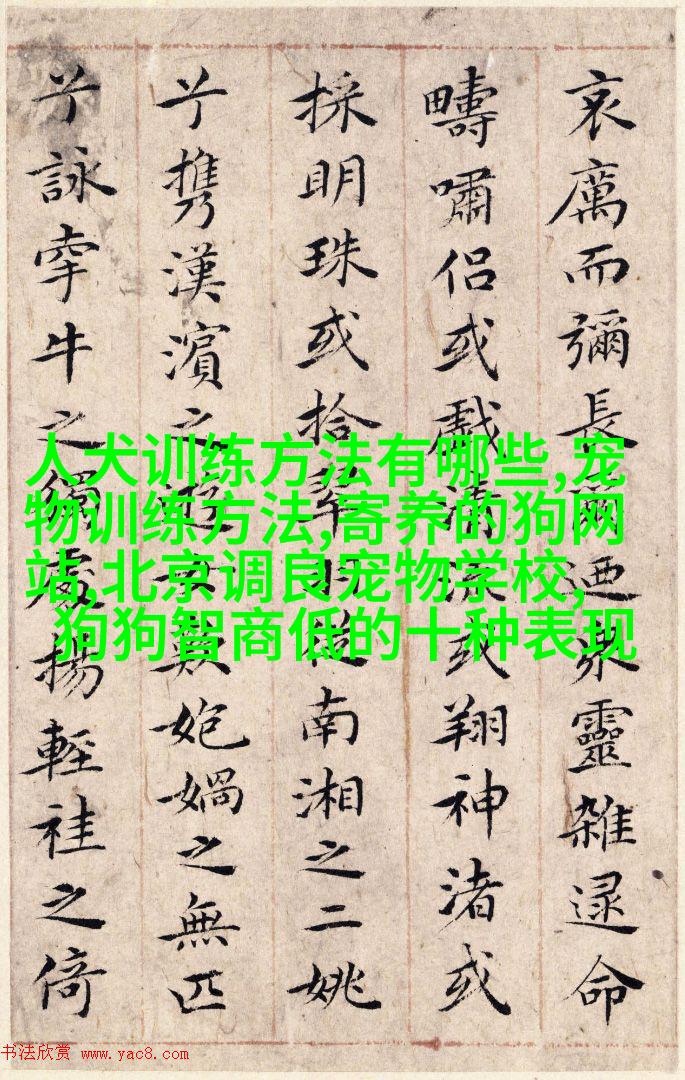 哀厲而彌長爾迺衆靈雜遝命
疇嘯侶或戲清深或翔神渚或
採明珠或拾翠羽從南湘之二姚
兮携漢濱之遊女歎妑媧之無匹
兮詠牽牛之獨處揚輕袿之倚
人犬训练方法有哪些,宠
物训练方法,寄养的狗网
站,北京调良宠物学校,
狗狗智商低的十种表现
书法欣赏 www.yac8.com